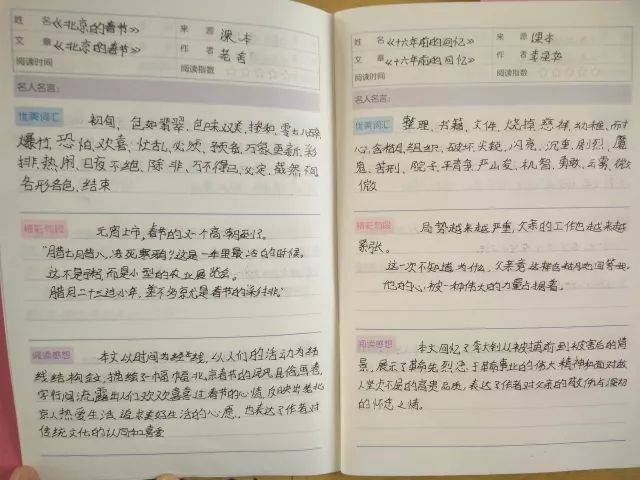 姓 名《北京的春节》 来 源 课本
文 章《北京的春节》 作 者 老舍
阅读时间 阅读指数 ☆☆☆☆☆
名人名言:
优美词汇 初旬、色如翡翠、色味双美、摊积、零七八碎
爆竹、恐怕、欢喜、杂拌、必须、预备、万象更新、彩
排、热闹、日夜不绝、除非、万不得已、必定、截然不同
各形各色、结束
精彩句段 元宵上市,春节的又一个高潮到了。
"腊七腊八,冻死寒鸦"这是一年里最冷的时候。
这不是粥,而是小型的农业展览会。
腊月二十三过小年,差不多就是春节的"彩排"
阅读感想 本文以时间为经线,以人们的活动为纬
线结构全文,描绘了一幅幅北京春节的民风民俗画卷,
字里行间流露出人们欢欢喜喜过春节的心情,反映出老北
京人热爱生活,追求美好生活的心愿,也表达了作者对
传统文化的认同和喜爱
姓 名《十六年前的回忆》 来 源 课本
文 章《十六年前的回忆》 作 者 李星华
阅读时间 阅读指数 ☆☆☆☆☆
名人名言:
优美词汇 整理、书籍、文件、烧掉、慈祥、幼稚、耐
心、含糊、组织、破坏、尖锐、闪亮、沉重、剧烈、魔
鬼、苦刑、
精彩句段 局势越来越严重,父亲的工作也越来越
紧张。
这一次不知道为什么,父亲竟这样含糊地回答我。
他的心,被一种伟大的力量占据着。
阅读感想 本文回忆了李大钊从被捕前到被害后的背
景,展示了革命先烈忠于革命事业的伟大精神和面对敌
人坚贞不屈的高贵品质,表达了作者对父亲的敬仰与深切
的怀念之情。